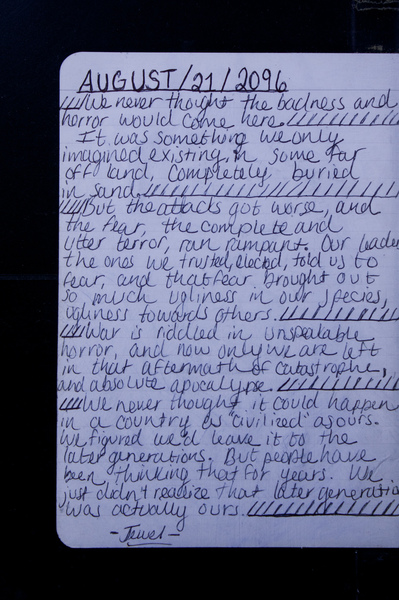 AUGUST/21/2096
////We never thought the badness and
horror would come here.////////////
It was something we only
imagined existing, in some far
off land, completely buried
in sand.//////////////////////////
////But the attacks got worse, and
the fear, the complete and
utter terror, ran rampant. Our leaders
the ones we trusted, elected, told us to
fear, and that fear brought out
so much ugliness in our species,
ugliness towards others.////////////
////War is riddled in unspeakable
horror, and now only we are left
in that aftermath of catastrophe,
and absolute apocalypse.////////////
////We never thought it could happen
in a country as "civilized" as ours.
We figured we'd leave it to the
later generations. But people have
been thinking that for years. We
just didn't realize that later generatio
was actually ours.////////////////
-Jewel-